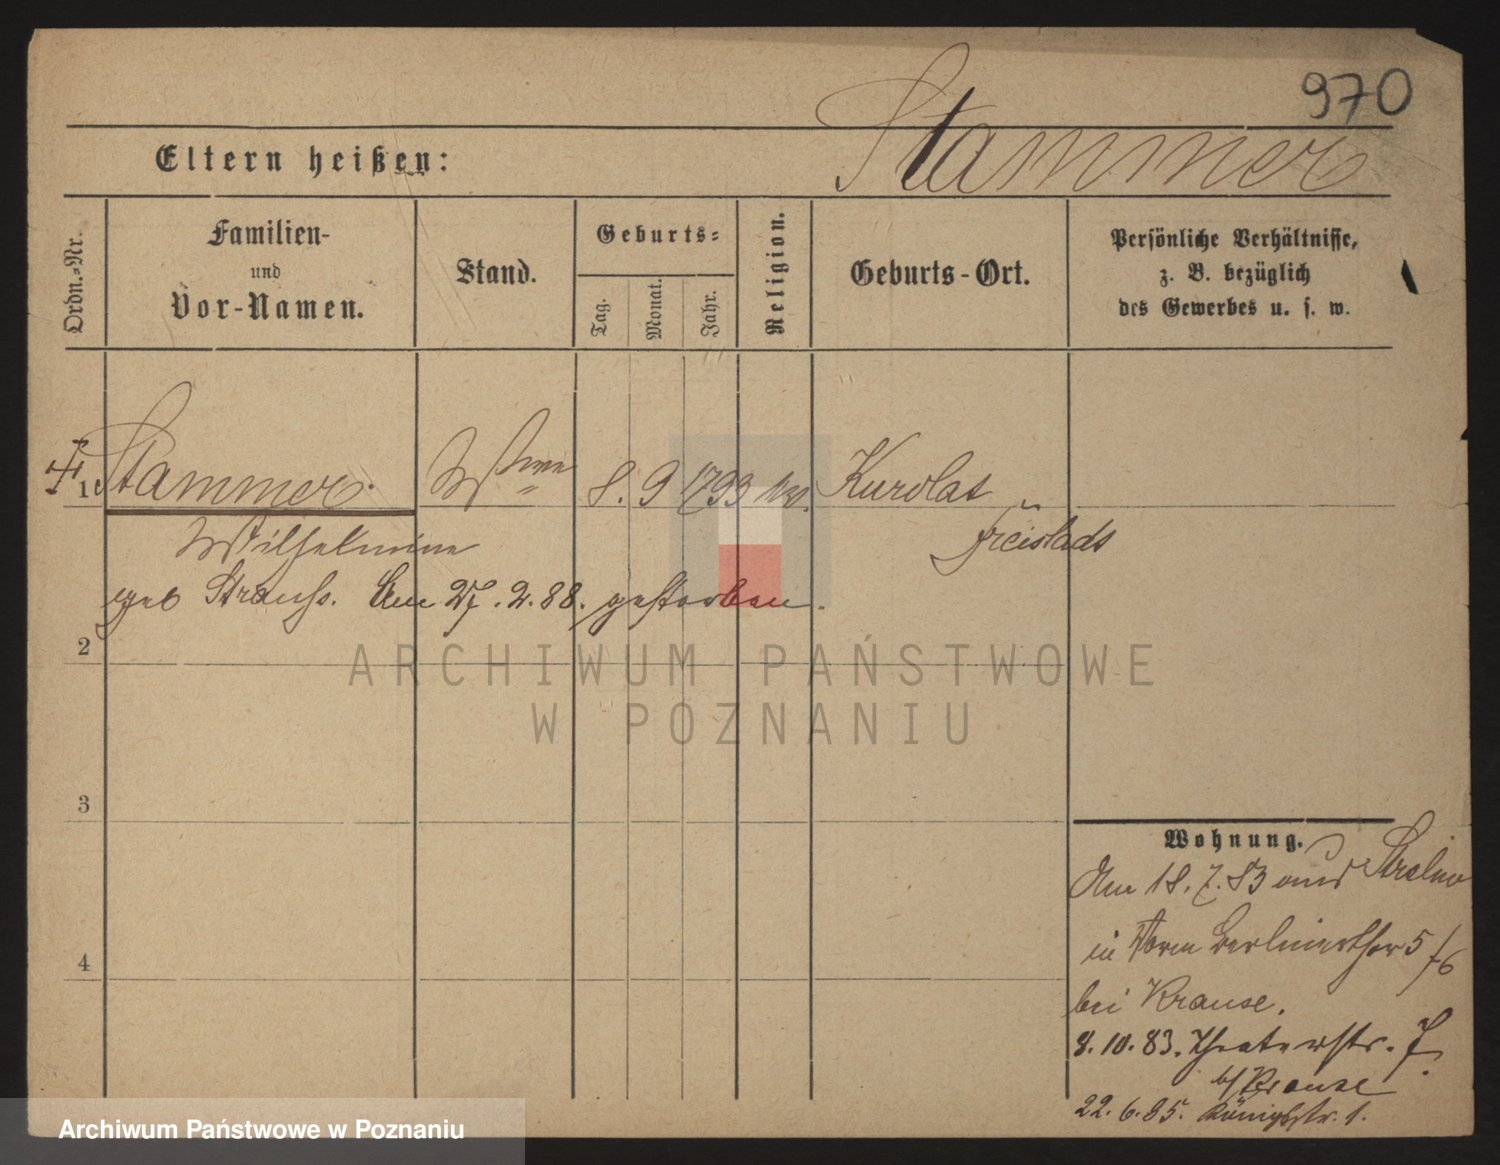 970
Stammer
Eltern heißen:
Ordn.-Nr.
Familien-
und
Vor-Namen.
Stand.
Geburts-
Tag.
Monat.
Jahr.
Religion.
Geburts-Ort.
Persönliche Verhältnisse,
z. B. bezüglich
des Gewerbes u. s. w.
1 Stammer. Wwe 8. 9 1793 Kurolat
Freistads
Wilhelmine
geb Strauss. Am 27. 2. 88. gestorben.
2
3
4
Wohnung.
Am 18. 7. 83 aus Strelno
in Vorm Berlinerthor 5/6
bei Krause.
8. 10. 83. Theaterstr. 7.
b/ Krause
22. 6. 85. Königsstr. 1.
ARCHIWUM PAŃSTWOWE
W POZNANIU
Archiwum Państwowe w Poznaniu